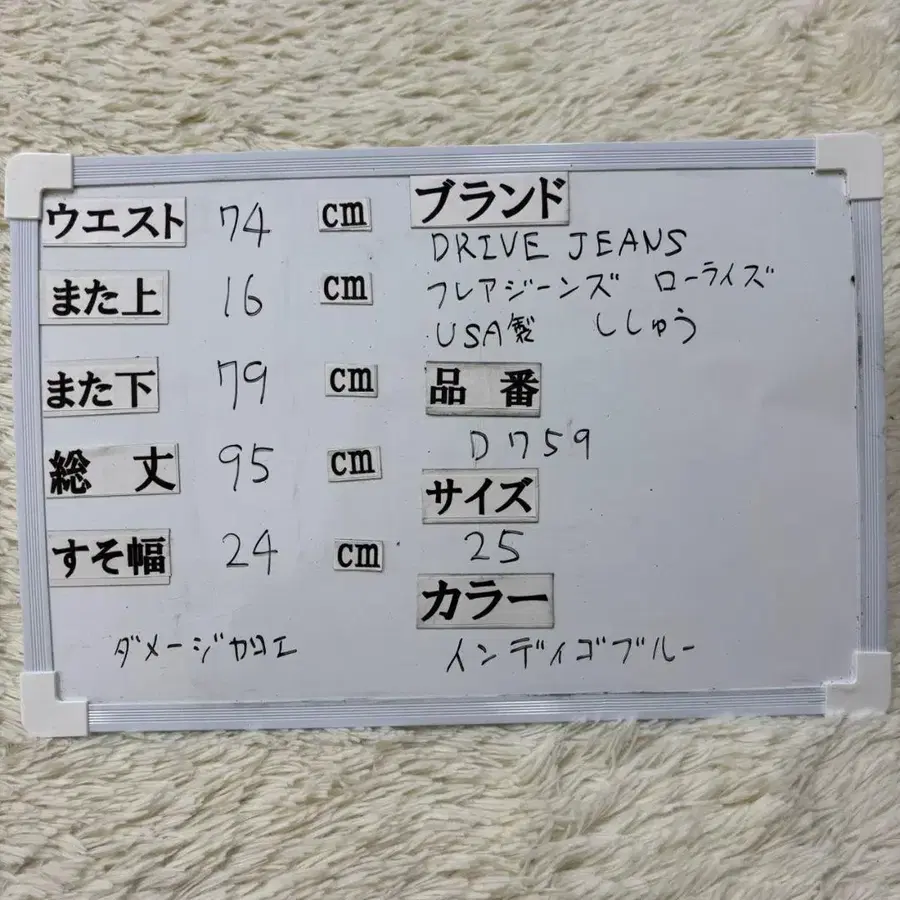 ウエスト 74 cm
また上 16 cm
また下 79 cm
総丈 95 cm
すそ幅 24 cm
ダメージ加工
ブランド
DRIVE JEANS
フレアジーンズ ローライズ
USA製 ししゅう
品番
D759
サイズ
25
カラー
インディゴブルー